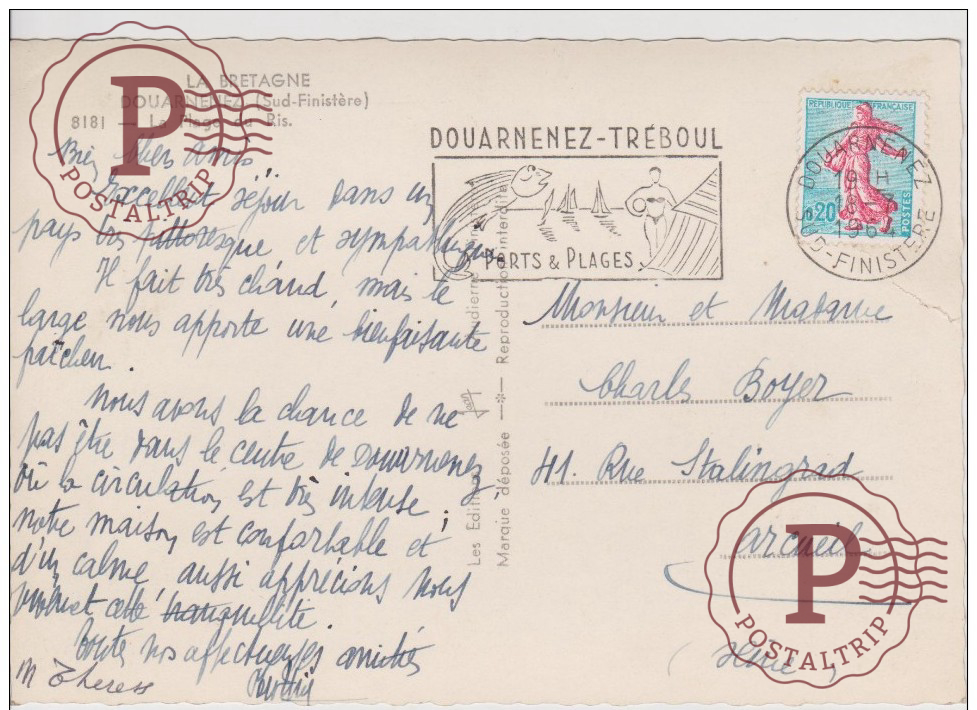 LA BRETAGNE
DOUARNENEZ (Sud-Finistère)
8181 — La Plage du Ris.
Bien Chers Amis
Excellent séjour dans un
pays très pittoresque et sympathique
Il fait très chaud, mais le
large nous apporte une bienfaisante
fraîcheur.
Nous avons la chance de ne
pas être dans le centre de Douarnenez
où la circulation est très intense ;
notre maison est confortable et
d'un calme aussi apprécions nous
cette tranquillité.
Toutes nos affectueuses amitiés
M Therese
Les Editions
Jean Audierne
Marque déposée —*— Reproduction interdite
DOUARNENEZ-TRÉBOUL
PORTS & PLAGES
REPUBLIQUE FRANÇAISE
0,20
POSTES
DOUARNENEZ
9 H
18
196
D-FINISTERE
Monsieur et Madame
Charles Boyer
41. Rue Stalingrad
Arcueil
(Seine)
P
POSTALTRIP
P
POSTALTRIP